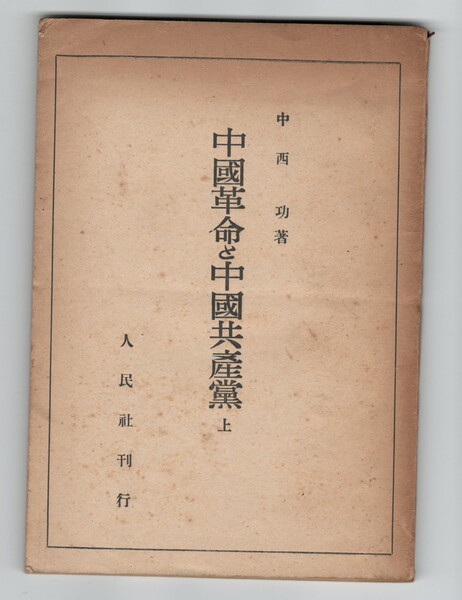 中西功著
中國革命と中國共產黨 上
人民社刊行